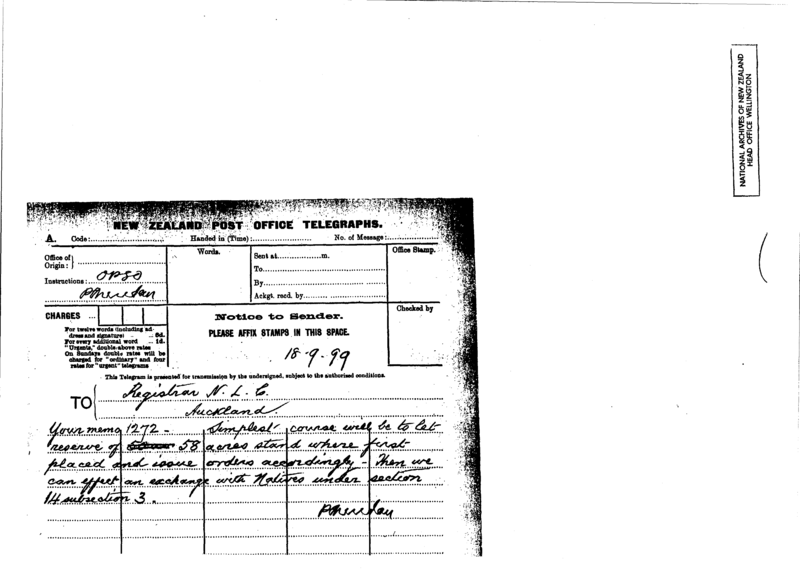 NATIONAL ARCHIVES OF NEW ZEALAND
HEAD OFFICE WELLINGTON
NEW ZEALAND POST OFFICE TELEGRAPHS.
A. Code: Handed in (Time): No. of Message:
Office of Origin:
Instructions: OPSO
PSheridan
Words.
Sent at m.
To
By
Ackgt. recd. by
Office Stamp.
CHARGES
For twelve words (including ad-
dress and signature) 6d.
For every additional word 1d.
"Urgents," double-above rates
On Sundays double rates will be
charged for "ordinary" and four
rates for "urgent" telegrams
Notice to Sender.
PLEASE AFFIX STAMPS IN THIS SPACE.
18-9-99
Checked by
This Telegram is presented for transmission by the undersigned, subject to the authorised conditions.
TO Registrar N. L. C.
Auckland.
Your memo 1272 - Simplest course will be to let
reserve of 58 acres stand where first
placed and issue orders accordingly - Then we
can effect an exchange with Natives under section
14 subsection 3.
PSheridan